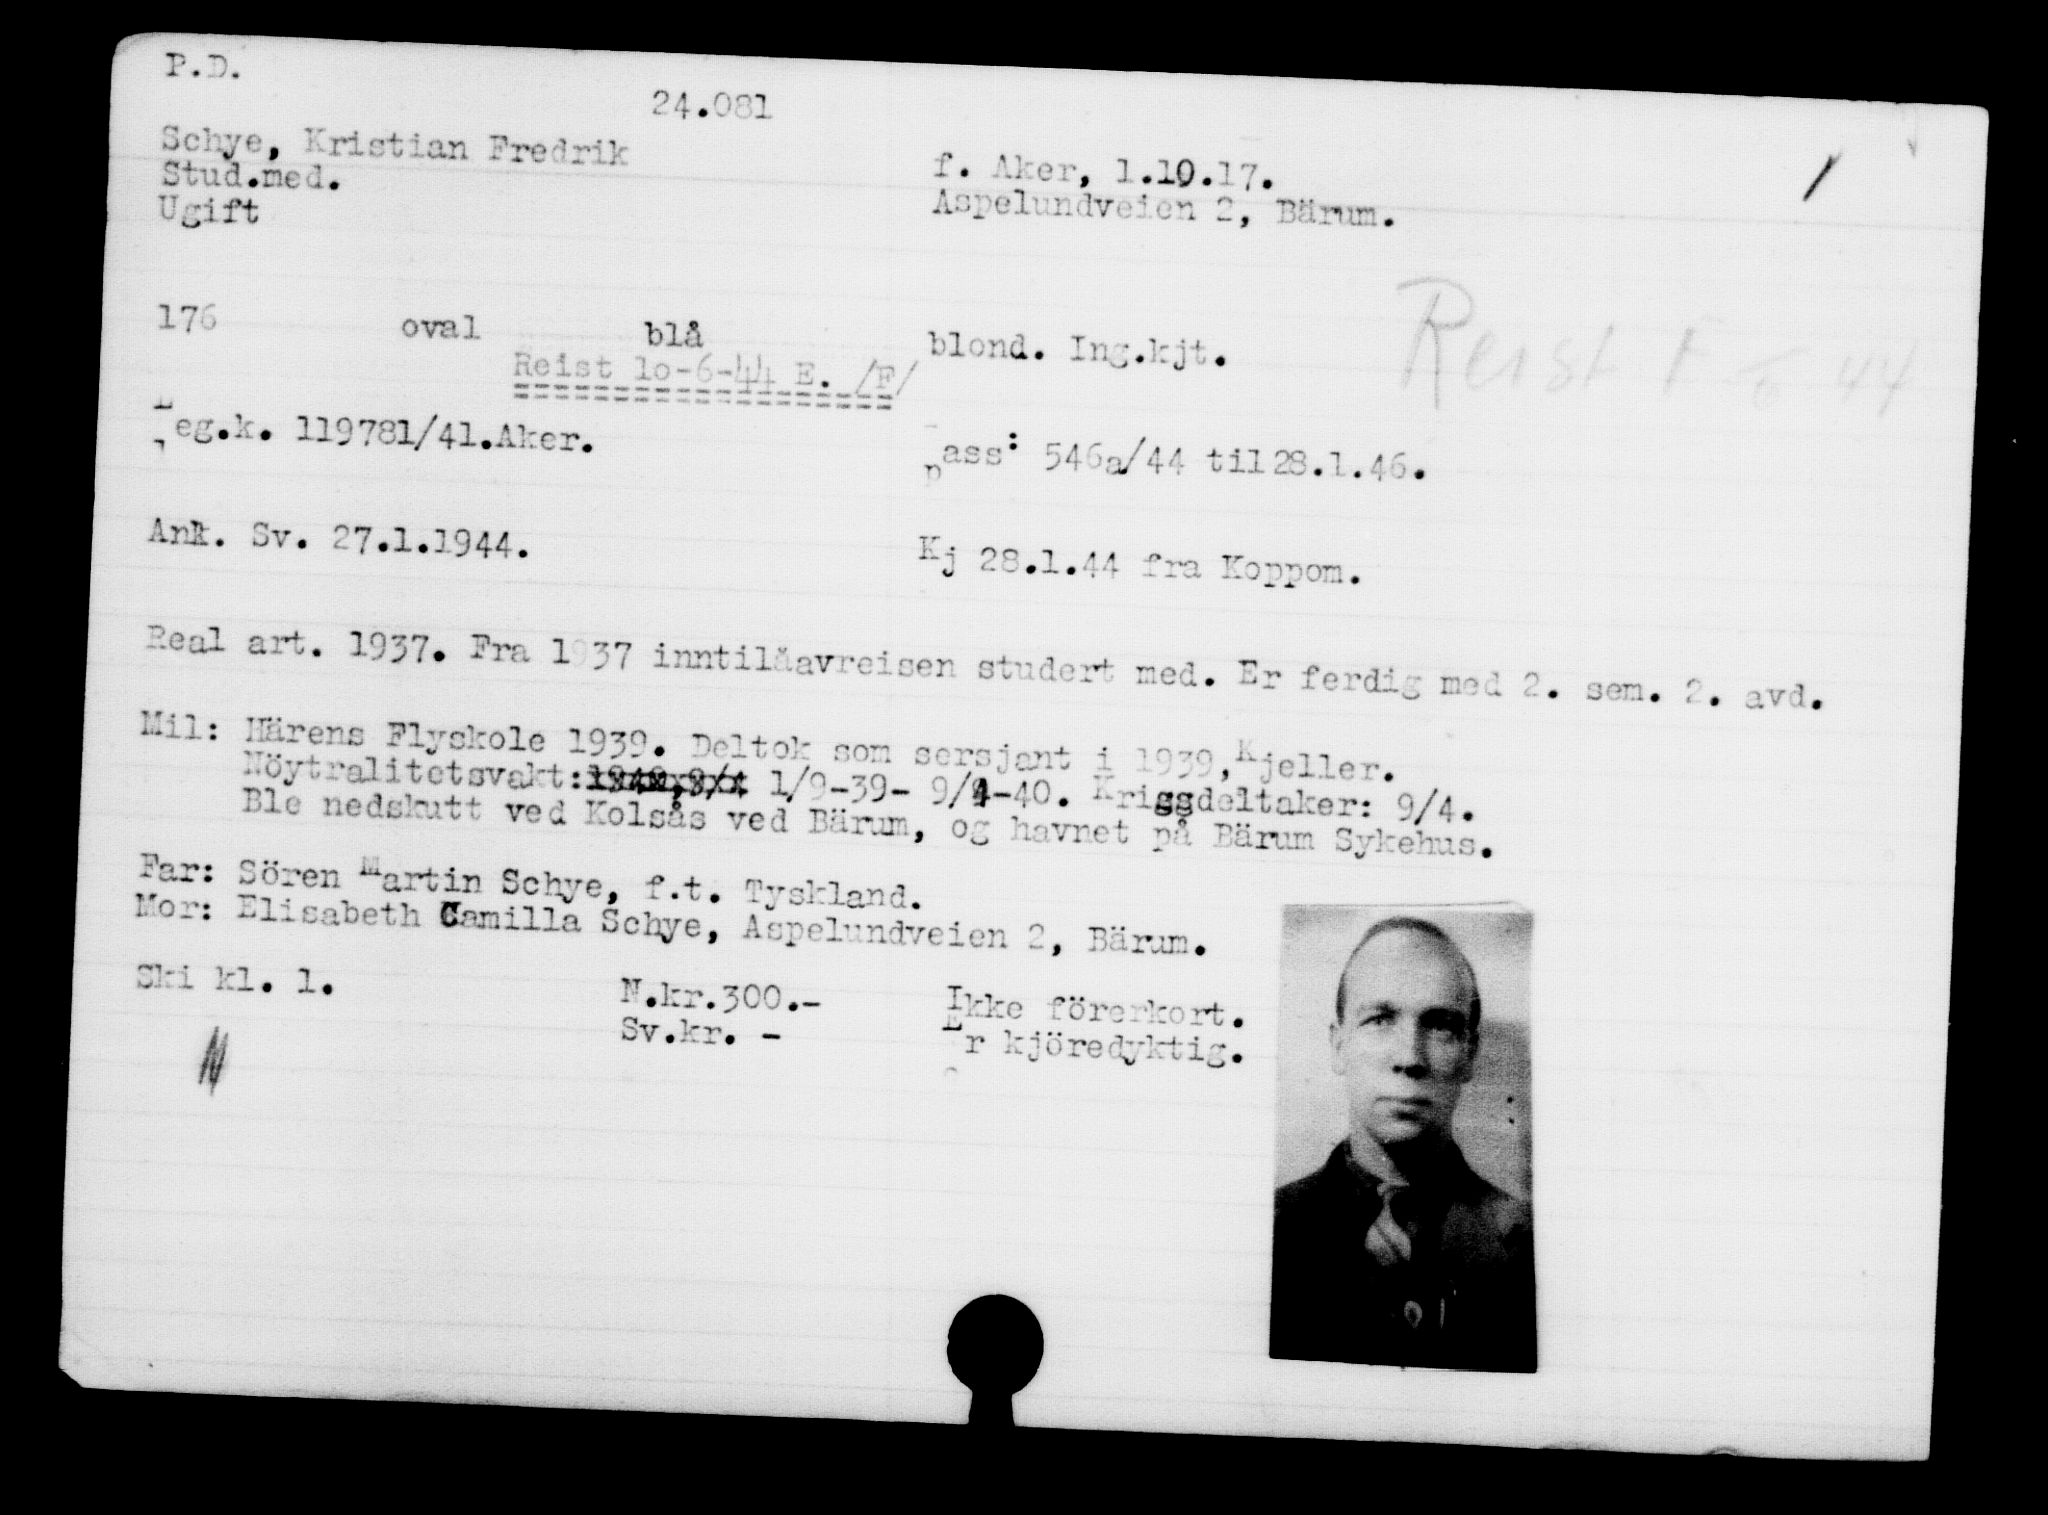 P.D.
24.081
Schye, Kristian Fredrik
f. Aker, 1.10.17.
Stud.med.
Aspelundveien 2, Bärum.
Ugift
176 oval blå blond. Ing.kjt.
Reist 44
Reist 1o-6-44 E. /F/
eg.k. 119781/41.Aker.
pass: 546a/44 til 28.1.46.
Ank. Sv. 27.1.1944.
Kj 28.1.44 fra Koppom.
Real art. 1937. Fra 1937 inntilåavreisen studert med. Er ferdig med 2. sem. 2. avd.
Mil: Härens Flyskole 1939. Deltok som sersjant i 1939, Kjeller.
Nöytralitetsvakt: 1/9-39- 9/4-40. Krigsdeltaker: 9/4.
Ble nedskutt ved Kolsås ved Bärum, og havnet på Bärum Sykehus.
Far: Sören Martin Schye, f.t. Tyskland.
Mor: Elisabeth Camilla Schye, Aspelundveien 2, Bärum.
Ski kl. 1. N.kr.300.- Ikke förerkort.
Sv.kr. - Er kjöredyktig.